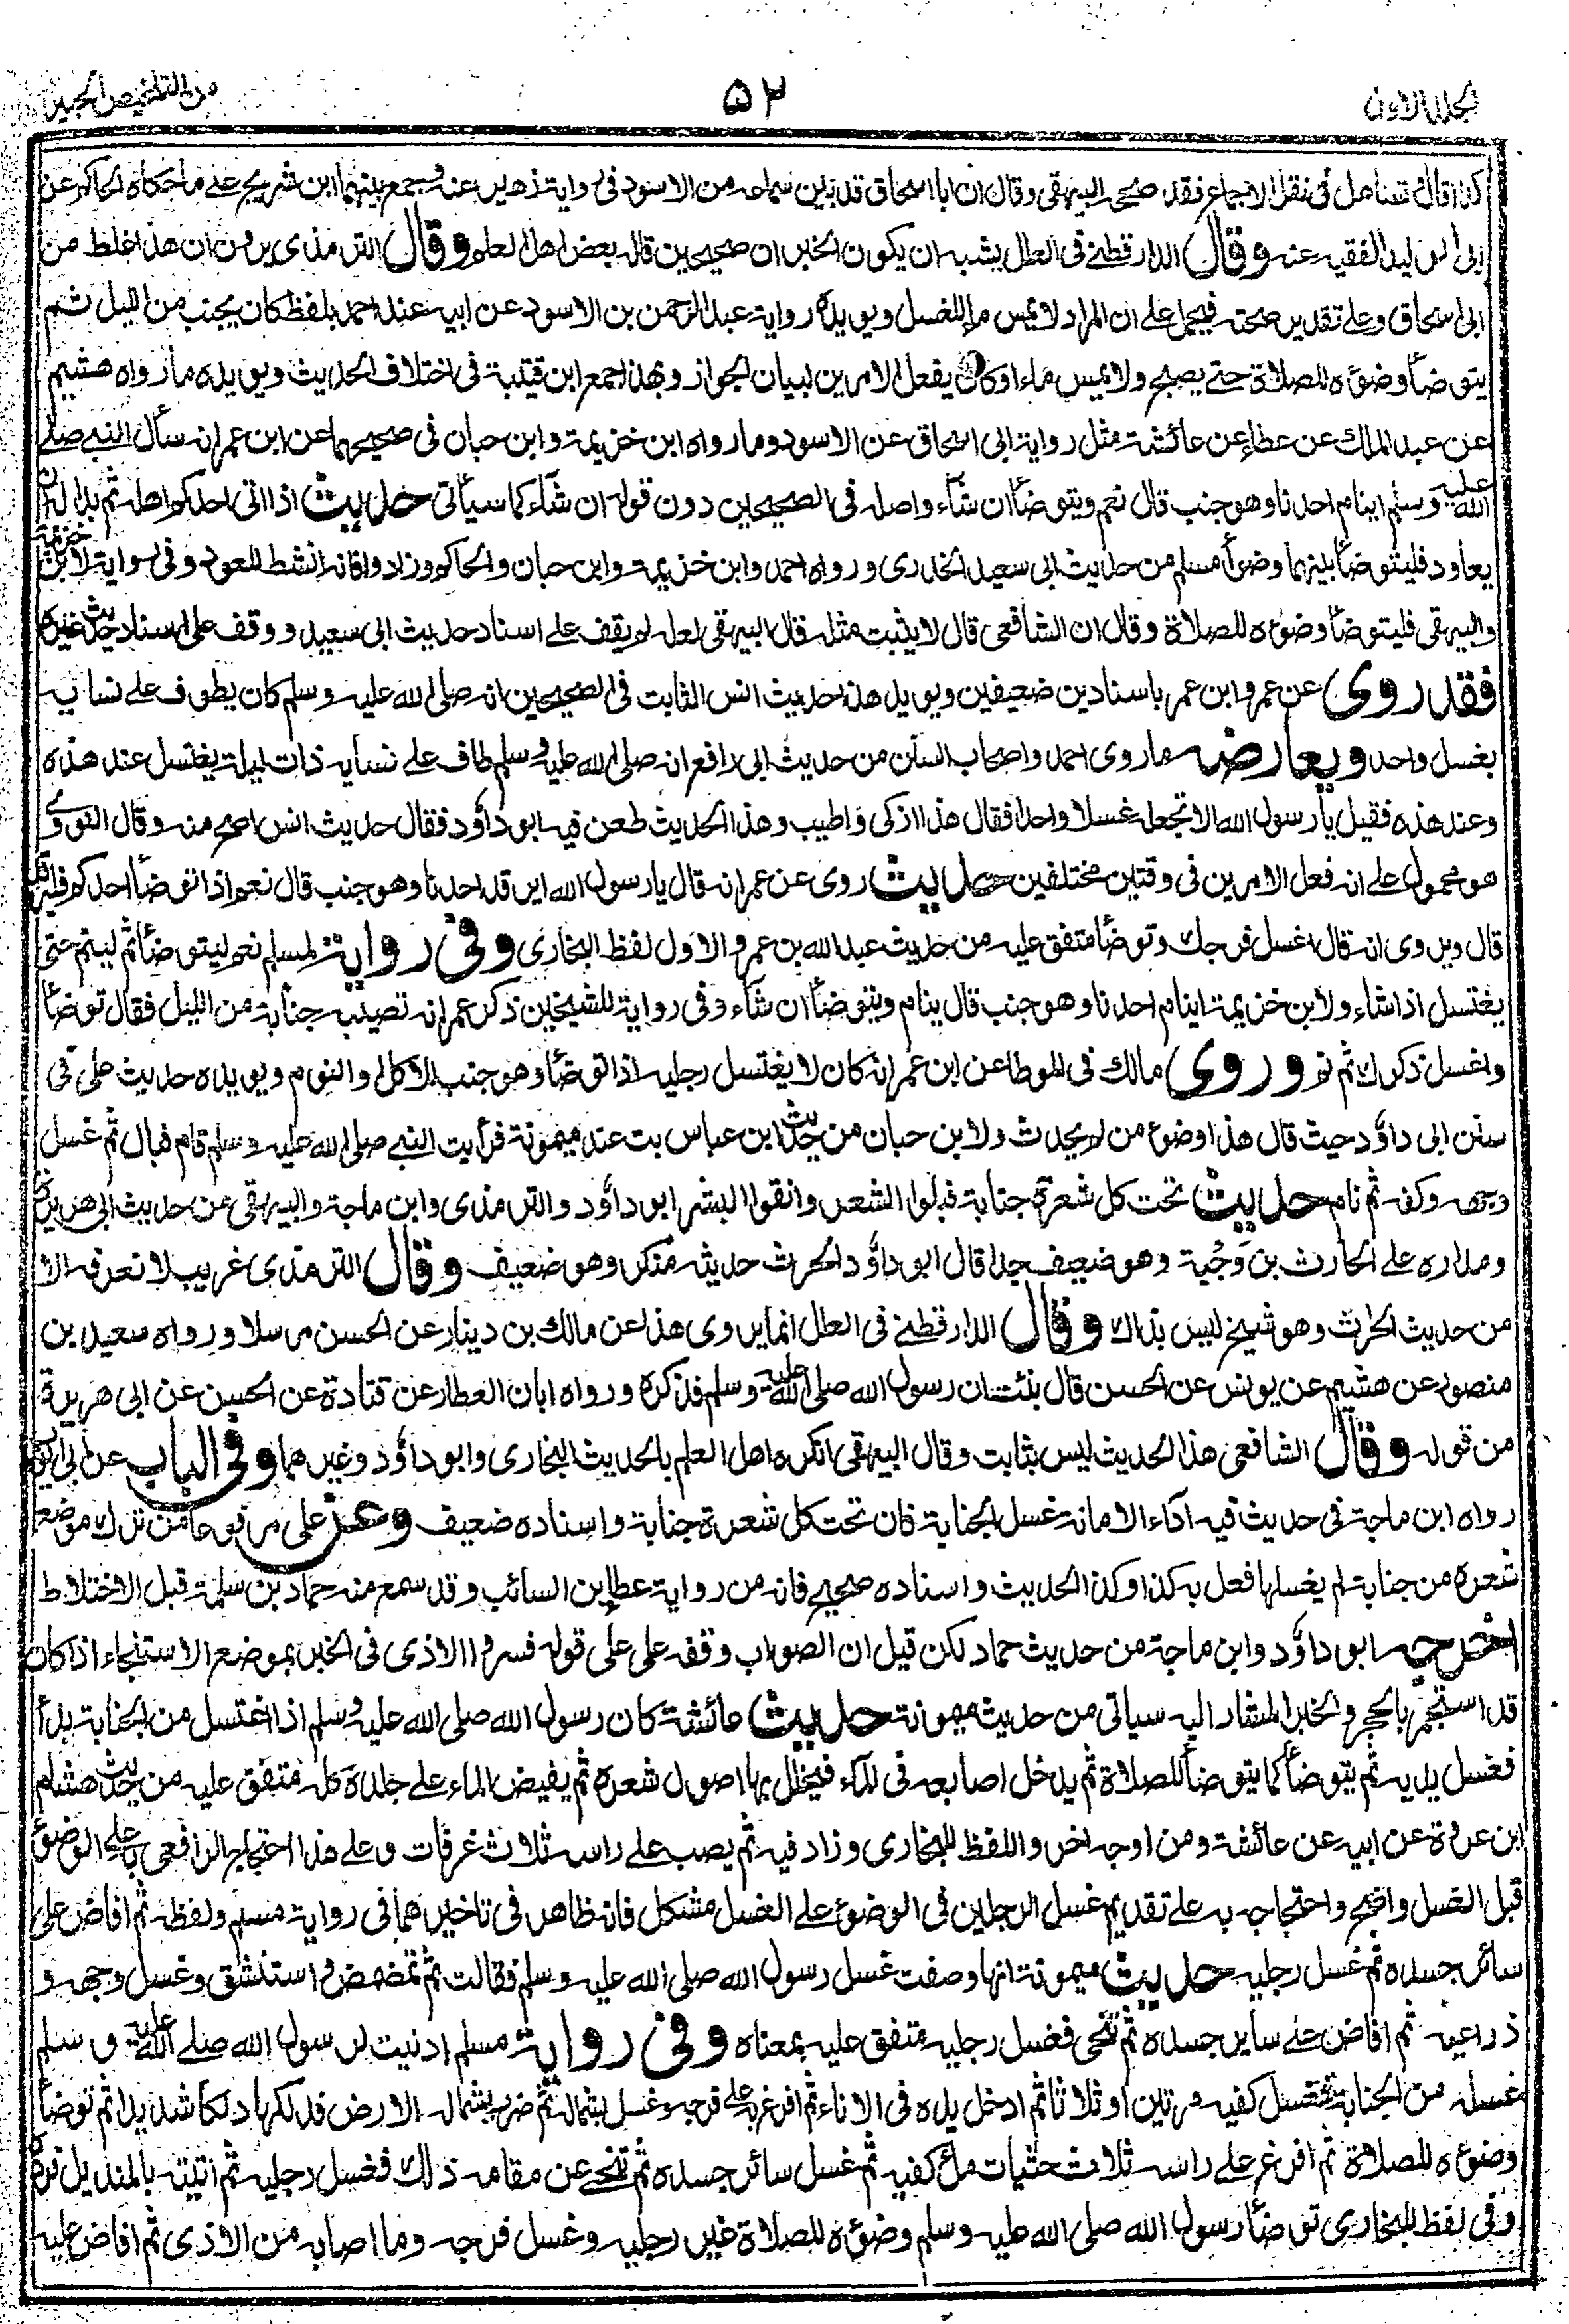 المجلد الاول
۵۲
من التلخيص الحبير
كذا قال وتساهل فى نقل الاجماع فقد صححه البيهقى وقال ان ابا اسحاق قد بين سماعه من الاسود فى رواية زهير عنه وجمع بينهما ابن شريج على ما حكاه الحاكم عن
ابى الوليد الفقيه عنه وقال الدارقطنے فى العلل يشبه ان يكون الخبران صحيحين قاله بعض اهل العلم وقال الترمذى يرون ان هذا غلط من
ابى اسحاق وعلے تقدير صحته فيحمل على ان المراد لا يمس ماء للغسل ويويده رواية عبد الرحمن بن الاسود عن ابيه عند احمد بلفظ كان يجنب من الليل ثم
يتوضأ وضؤه للصلاة حتے يصبح ولا يمس ماء او كان يفعل الامرين لبيان الجواز وبهذا جمع ابن قتيبة فى اختلاف الحديث ويويده ما رواه هشيم
عن عبد الملك عن عطاء عن عائشة مثل رواية ابى اسحاق عن الاسود وما رواه ابن خزيمة وابن حبان فى صحيحهما عن ابن عمر انه سأل النبے صلے
الله عليه وسلم اينام احدنا وهو جنب قال نعم ويتوضأ ان شاء واصله فى الصحيحين دون قوله ان شاء كما سيأتى حديث اذا اتى احدكم اهله ثم بدا له ان
يعاود فليتوضأ بينهما وضوأ مسلم من حديث ابى سعيد الخدرى ورواه احمد وابن خزيمة وابن حبان والحاكم وزادوا فانه انشط للعود وفى رواية لابن خزيمة
والبيهقى فليتوضأ وضوءه للصلاة وقال ان الشافعى قال لا يثبت مثله قال البيهقى لعله لم يقف على اسناد حديث ابى سعيد ووقف على اسناد حديث غيره
فقد روى عن عمر وابن عمر باسنادين ضعيفين ويويد هذا حديث انس الثابت فى الصحيحين انه صلى الله عليه وسلم كان يطوف على نسايه
بغسل واحد ويعارضه ما روى احمد واصحاب السنن من حديث ابى رافع انه صلى الله عليه وسلم طاف على نسايه ذات ليلة يغتسل عند هذه
وعند هذه فقيل يا رسول الله الا تجعله غسلا واحدا فقال هذا ازكى واطيب وهذا الحديث طعن فيه ابو داؤد فقال حديث انس اصح منه وقال النووے
هو محمول على انه فعل الامرين فى وقتين مختلفين حديث روى عن عمر انه قال يا رسول الله ايرقد احدنا وهو جنب قال نعم اذا توضأ احدكم فليرقد
قال ويروى انه قال اغسل فرجك وتوضأ متفق عليه من حديث عبد الله بن عمر والاول لفظ البخارى وفى رواية لمسلم نعم ليتوضأ ثم لينم حتى
يغتسل اذا شاء ولابن خزيمة اينام احدنا وهو جنب قال ينام ويتوضأ ان شاء وفى رواية للشيخين ذكر عمر انه تصيبه جنابة من الليل فقال توضأ
واغسل ذكرك ثم نم وروى مالك فى الموطا عن ابن عمر انه كان لا يغتسل رجليه اذا توضأ وهو جنب للاكل والنوم ويويده حديث على فى
سنن ابى داؤد حيث قال هذا وضوء من لم يحدث ولابن حبان من حديث ابن عباس بت عند ميمونة فرأيت النبے صلى الله عليه وسلم قام فبال ثم غسل
وجهه وكفيه ثم نام حديث تحت كل شعرة جنابة فبلوا الشعر وانقوا البشر ابو داؤد والترمذى وابن ماجة والبيهقى من حديث ابى هريرة
ومداره على الحارث بن وَجْية وهو ضعيف جدا قال ابو داؤد الحرث حديثه منكر وهو ضعيف وقال الترمذى غريب لا نعرفه الا
من حديث الحرث وهو شيخ ليس بذاك وقال الدارقطنے فى العلل انما يروى هذا عن مالك بن دينار عن الحسن مرسلا ورواه سعيد بن
منصور عن هشيم عن يونس عن الحسن قال نبئت ان رسول الله صلى الله عليه وسلم فذكره ورواه ابان العطار عن قتادة عن الحسن عن ابى هريرة
من قوله وقال الشافعى هذا الحديث ليس بثابت وقال البيهقى انكره اهل العلم بالحديث البخارى وابو داؤد وغيرهما وفى الباب عن ابى ايوب
رواه ابن ماجة فى حديث فيه آداء الامانة غسل الجنابة فان تحت كل شعرة جنابة واسناده ضعيف وعن على مرفوعا من ترك موضع
شعرة من جنابة لم يغسلها فعل به كذا وكذا الحديث واسناده صحيح فانه من رواية عطاء بن السائب وقد سمع منه حماد بن سلمة قبل الاختلاط
اخرجه ابو داؤد وابن ماجة من حديث حماد لكن قيل ان الصواب وقفه على على قوله فسروا الاذى فى الخبر بموضع الاستنجاء اذا كان
قد استجمر بالحجر والخبر المشار اليه سياتى من حديث ميمونة حديث عائشة كان رسول الله صلى الله عليه وسلم اذا اغتسل من الجنابة بدأ
فغسل يديه ثم يتوضأ كما يتوضأ للصلاة ثم يدخل اصابعه فى الماء فيخلل بها اصول شعره ثم يفيض الماء على جلده كله متفق عليه من حديث هشام
ابن عروة عن ابيه عن عائشة ومن اوجه اخر واللفظ للبخارى وزاد فيه ثم يصب على راسه ثلاث غرفات وعلى هذا احتجاج الرافعى به على الوضوء
قبل الغسل واضح واحتجاجه به على تقديم غسل الرجلين فى الوضوء على الغسل مشكل فانه ظاهر فى تاخيرهما فى رواية مسلم ولفظه ثم افاض على
سائر جسده ثم غسل رجليه حديث ميمونة انها وصفت غسل رسول الله صلى الله عليه وسلم فقالت ثم تمضمض واستنشق وغسل وجهه و
ذراعيه ثم افاض على ساير جسده ثم تنحى فغسل رجليه متفق عليه بمعناه وفى رواية مسلم ادنيت لرسول الله صلے الله عليه و سلم
غسله من الجنابة فغسل كفيه مرتين او ثلاثا ثم ادخل يده فى الاناء ثم افرغ به على فرجه وغسله بشماله ثم ضرب بشماله الارض فدلكها دلكا شديدا ثم توضأ
وضوءه للصلاة ثم افرغ على راسه ثلاث حثيات ملء كفيه ثم غسل سائر جسده ثم تنحے عن مقامه ذلك فغسل رجليه ثم اتيته بالمنديل فرده
وفى لفظ للبخارى توضأ رسول الله صلى الله عليه وسلم وضؤه للصلاة غير رجليه وغسل فرجه وما اصابه من الاذى ثم افاض عليه